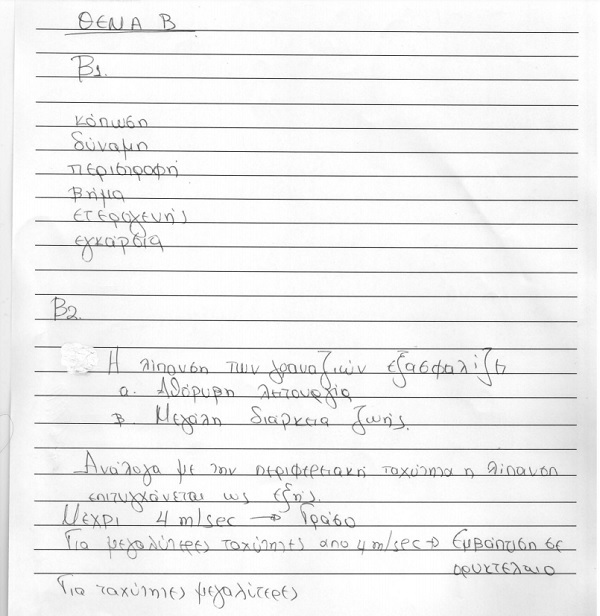 ΘΕΜΑ Β
Β1.
κόπωση
δύναμη
περιστροφή
βήμα
ετερογενής
εγκάρσια
Β2.
Η λίπανση των γραναζιών εξασφαλίζει
α. Αθόρυβη λειτουργία
β. Μεγάλη διάρκεια ζωής.
Ανάλογα με την περιφερειακή ταχύτητα η λίπανση
επιτυγχάνεται ως εξής.
Μέχρι 4 m/sec → Γράσο
Για μεγαλύτερες ταχύτητες απο 4 m/sec → Εμβάπτιση σε
ορυκτέλαιο
Για ταχύτητες μεγαλύτερες